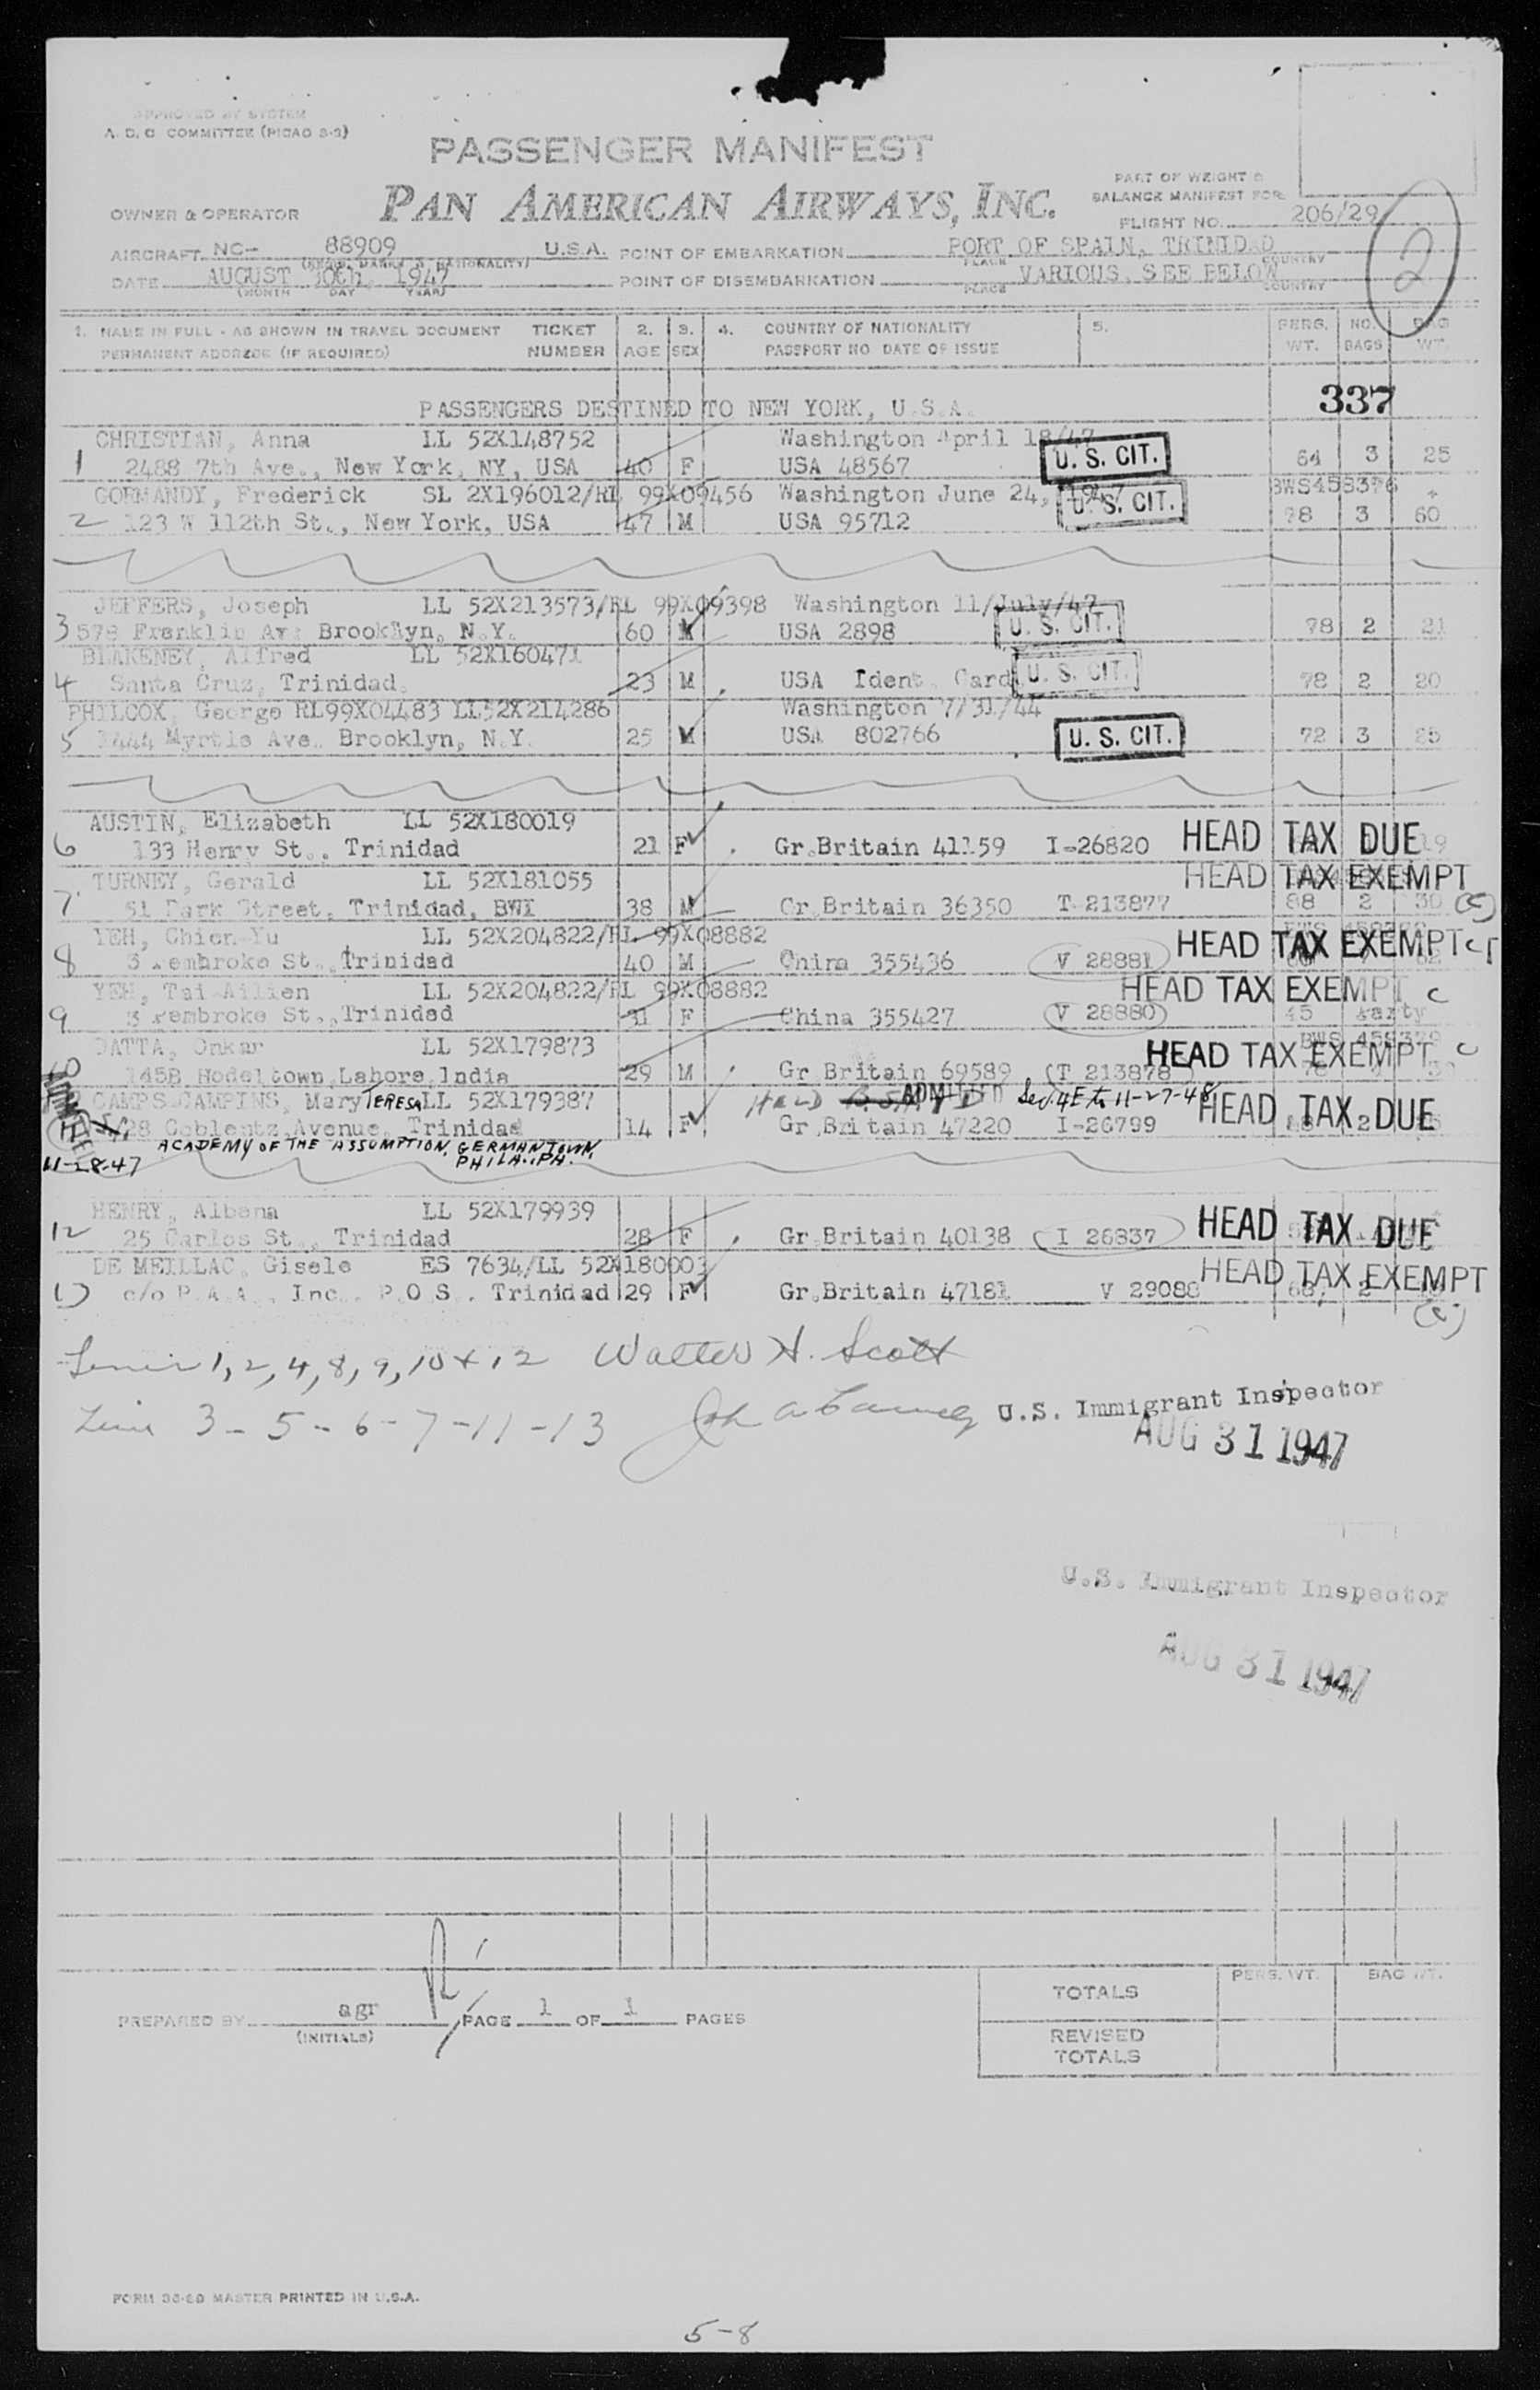 APPROVED BY SYSTEM
A. D. C. COMMITTEE (PICAO S-3)
PASSENGER MANIFEST
PAN AMERICAN AIRWAYS, INC.
PART OF WEIGHT &
BALANCE MANIFEST FOR
FLIGHT NO. 206/29
2
OWNER & OPERATOR
AIRCRAFT NC- 88909 U.S.A. POINT OF EMBARKATION PORT OF SPAIN, TRINIDAD
PLACE COUNTRY
DATE AUGUST 1947 POINT OF DISEMBARKATION VARIOUS, SEE BELOW
(MONTH DAY YEAR) PLACE COUNTRY
1. NAME IN FULL - AS SHOWN IN TRAVEL DOCUMENT TICKET 2. 3. 4. COUNTRY OF NATIONALITY 5. PERS. NO. BAG
PERMANENT ADDRESS (IF REQUIRED) NUMBER AGE SEX PASSPORT NO DATE OF ISSUE WT. BAGS WT.
337
PASSENGERS DESTINED TO NEW YORK, U.S.A.
CHRISTIAN, Anna LL 52X148752 Washington April 18/47
1 2488 7th Ave., New York, NY, USA 40 F USA 48567 U. S. CIT. 64 3 25
GORMANDY, Frederick SL 2X196012/RL 99X09456 Washington June 24, 1947 BWS458376
2 123 W 112th St., New York, USA 47 M USA 95712 U. S. CIT. 78 3 60
JEFFERS, Joseph LL 52X213573/RL 99X09398 Washington 11/July/47
3 578 Franklin Av: Brooklyn, N.Y. 60 M USA 2898 U. S. CIT. 78 2 21
BLAKENEY, Alfred LL 52X160471
4 Santa Cruz, Trinidad. 23 M USA Ident. Card U. S. CIT. 78 2 20
PHILCOX, George RL99X04483 LL52X214286 Washington 7/31/44
5 1444 Myrtle Ave. Brooklyn, N.Y. 25 M USA 802766 U. S. CIT. 72 3 25
AUSTIN, Elizabeth LL 52X180019
6 133 Henry St., Trinidad 21 F Gr.Britain 41159 I-26820 HEAD TAX DUE 19
TURNEY, Gerald LL 52X181055 HEAD TAX EXEMPT
7 51 Park Street, Trinidad, BWI 38 M Gr.Britain 36350 T-213877 88 2 30 (c)
YEH, Chien-Yu LL 52X204822/RL 99X08882 HEAD TAX EXEMPT
8 3 Pembroke St., Trinidad 40 M China 355436 V 28881
YEH, Tai-Ailien LL 52X204822/RL 99X08882 HEAD TAX EXEMPT c
9 3 Pembroke St., Trinidad 31 F China 355427 V 28880 45 Party
DATTA, Onkar LL 52X179873 HEAD TAX EXEMPT c
145B Modeltown,Lahore,India 29 M Gr Britain 69589 (T 213878)
CAMPS-CAMPINS, Mary TERESA LL 52X179387 HELD ADMITTED Sec. 4E to 11-27-48 HEAD TAX DUE
28 Coblentz Avenue, Trinidad 14 F Gr.Britain 47220 I-26799 2
ADMITTED
11-28-47 ACADEMY OF THE ASSUMPTION, GERMANTOWN,
PHILA., PA.
HENRY, Albena LL 52X179939
12 25 Carlos St., Trinidad 28 F Gr.Britain 40138 I 26837 HEAD TAX DUE
DE MEILLAC, Gisele ES 7634/LL 52X180003 HEAD TAX EXEMPT
13 c/o P.A.A., Inc., P.O.S. Trinidad 29 F Gr.Britain 47181 V 29088 2
(c)
Lines 1, 2, 4, 8, 9, 10 + 12 Walter H. Scott
Line 3 - 5 - 6 - 7 - 11 - 13 U.S. Immigrant Inspector
AUG 31 1947
U.S. Immigrant Inspector
AUG 31 1947
PERS. WT. BAG WT.
TOTALS
REVISED
TOTALS
PREPARED BY agr PAGE 1 OF 1 PAGES
(INITIALS)
FORM 36-60 MASTER PRINTED IN U.S.A.
5-8